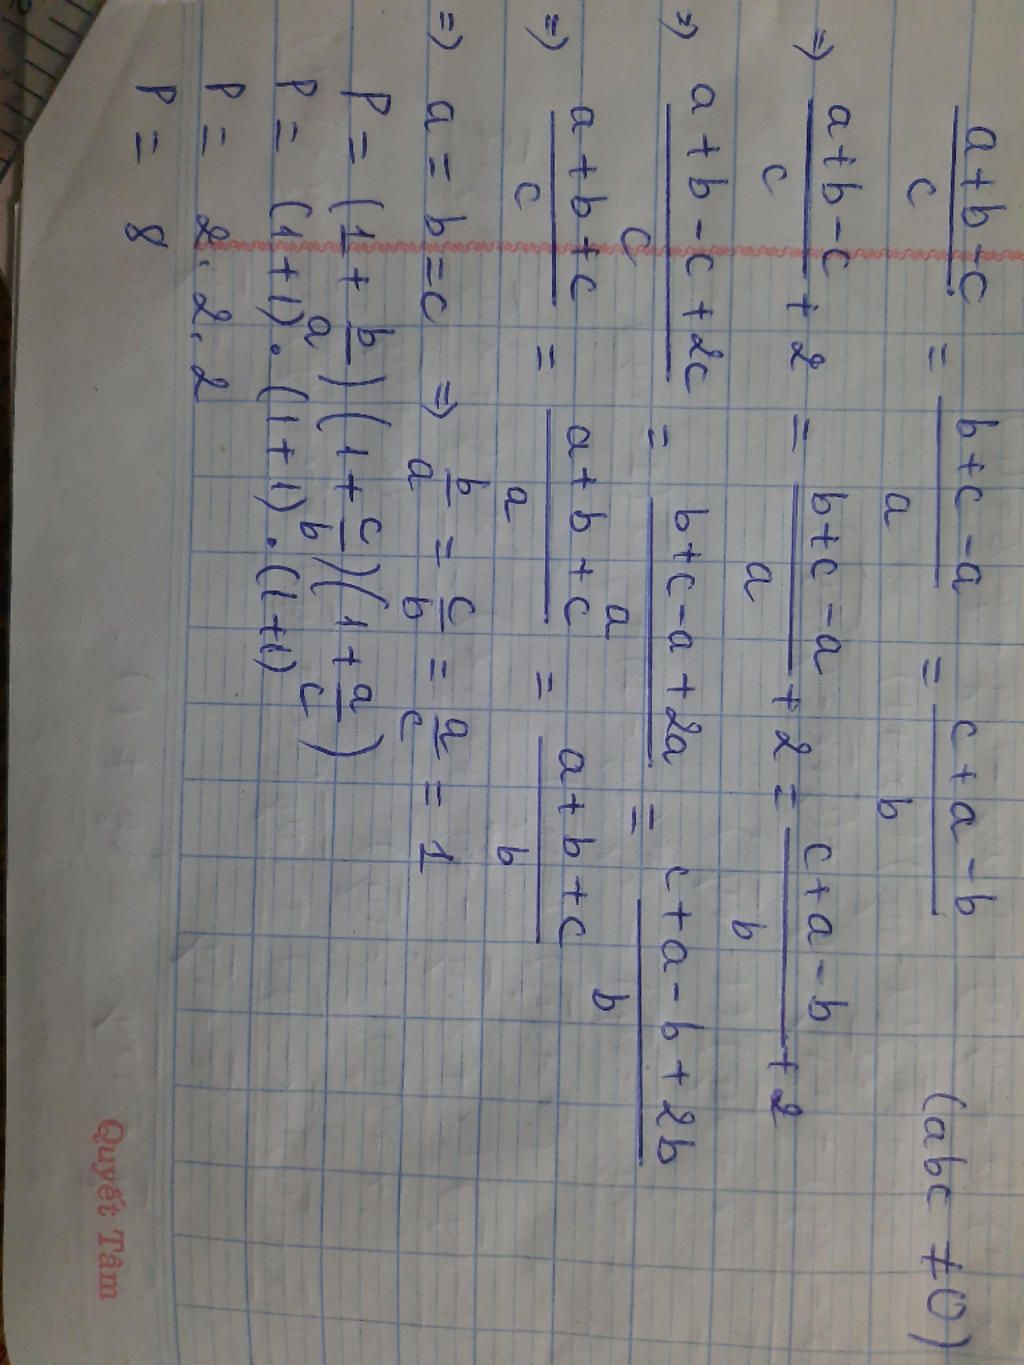 a+b-c/c = b+c-a/a = c+a-b/b (abc ≠ 0)
=) a+b-c/c + 2 = b+c-a/a + 2 = c+a-b/b + 2
=) a+b-c+2c/c = b+c-a+2a/a = c+a-b+2b/b
=) a+b+c/c = a+b+c/a = a+b+c/b
=) a = b = c =) b/a = c/b = a/c = 1
P = (1 + b/a)(1 + c/b)(1 + a/c)
P = (1+1).(1+1).(1+1)
P = 2.2.2
P = 8
Quyết Tâm